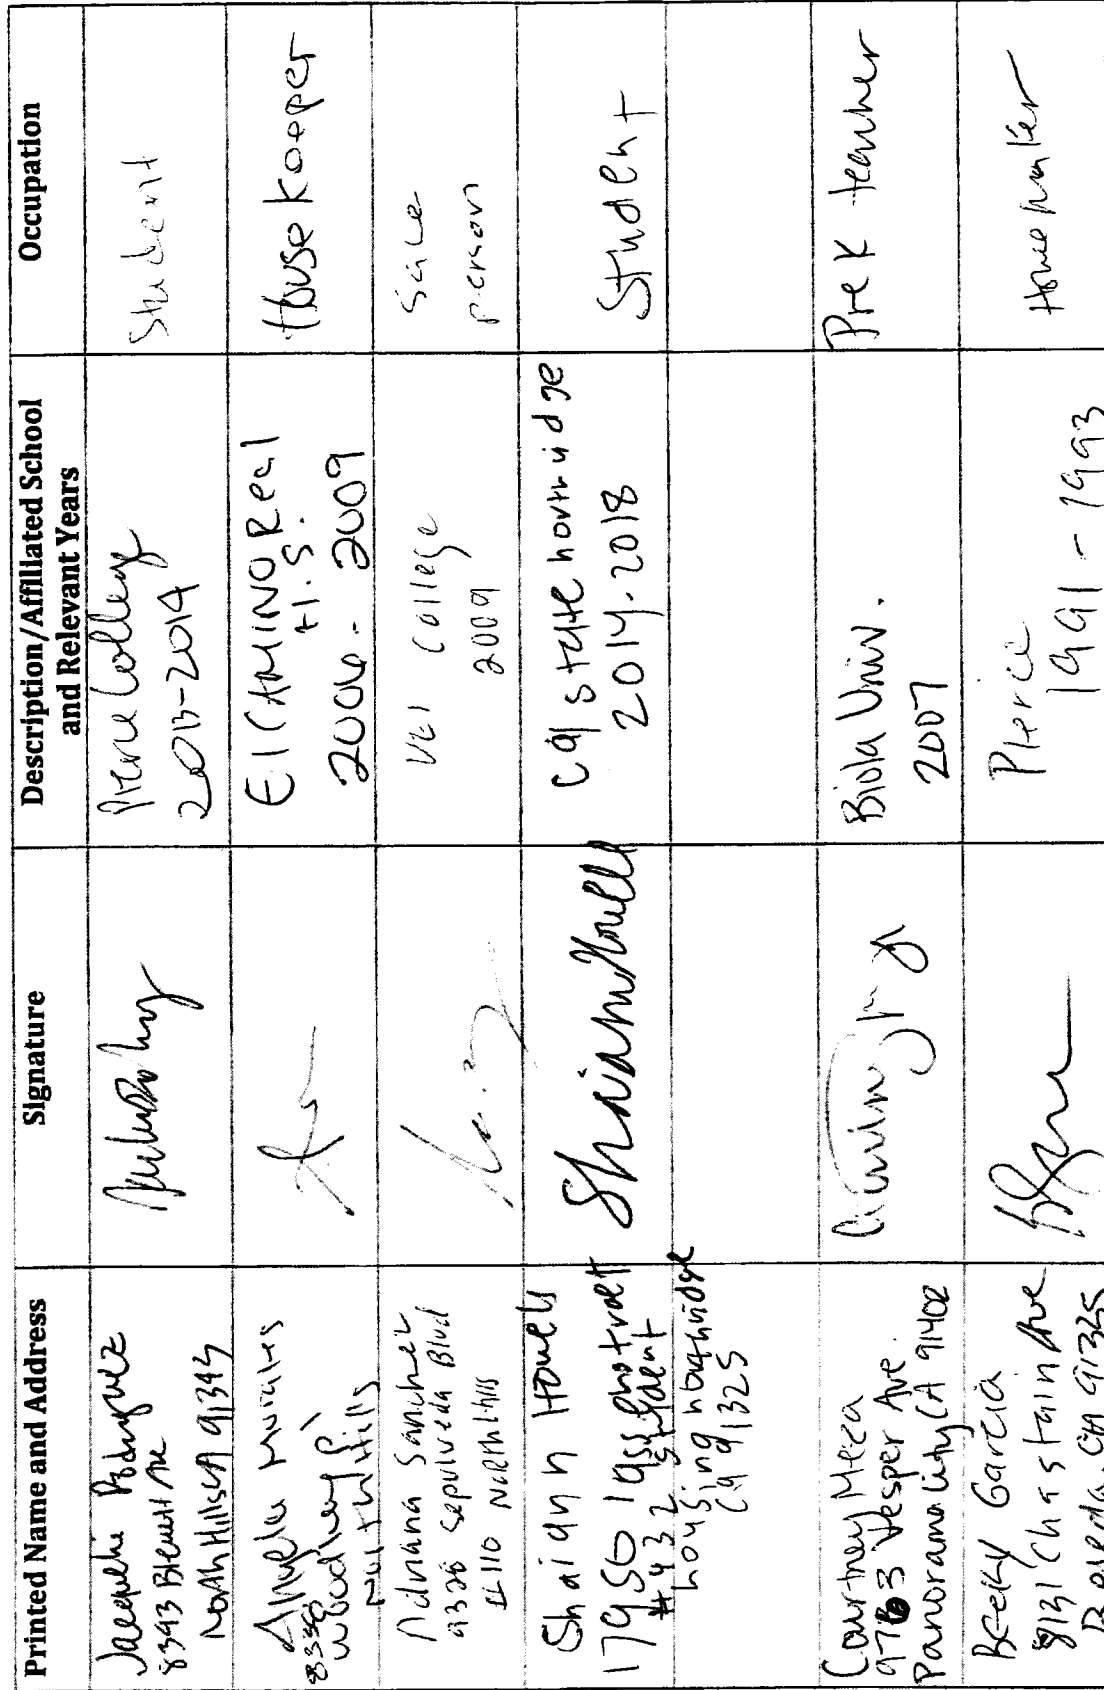 Printed Name and Address
Signature
Description/Affiliated School
and Relevant Years
Occupation
Jacquelin Rodriguez
8343 Blewett Ave
North Hills CA 91343
Pierce College
2013-2014
Student
Angela Morales
8338
Woodley Pl
North Hills
El CAMINO Real
H.S.
2006 - 2009
House Keeper
Adriana Sanchez
9326 Sepulveda Blvd
#110 North Hills
VCI College
2009
Sale
person
Shaiann Howell
17950
#432 student
housing northridge
Ca 91325
Shaiann Howell
Cal state northridge
2014-2018
Student
Courtney Meza
9763 Vesper Ave.
Panorama City CA 91402
Biola Univ.
2007
Pre K teacher
Becky Garcia
8131 Chastain Ave
Reseda, CA 91335
Pierce
1991 - 1993
Homemaker